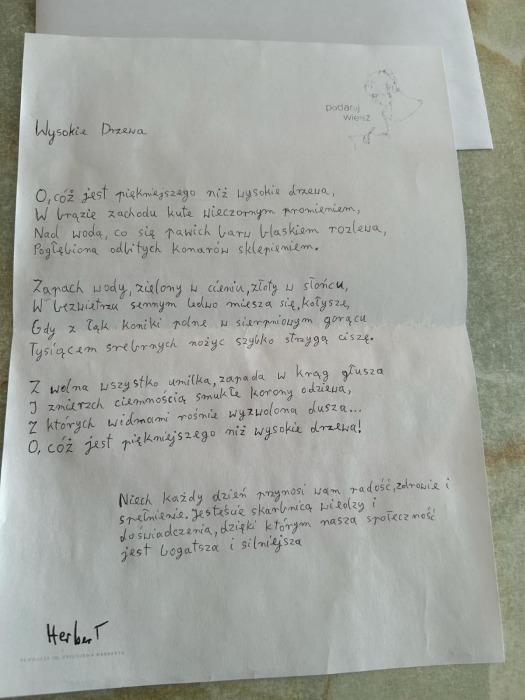 podaruj
wiersz
Wysokie Drzewa
O, cóż jest piękniejszego niż wysokie drzewa,
W brązie zachodu kute wieczornym promieniem,
Nad wodą, co się pawich barw blaskiem rozlewa,
Pogłębiona odbitych konarów sklepieniem.
Zapach wody, zielony w cieniu, złoty w słońcu,
W bezwietrzu sennym ledwo miesza się, kołysze,
Gdy z łąk koniki polne w sierpniowym gorącu
Tysiącem srebrnych nożyc szybko strzygą ciszę.
Z wolna wszystko umilka, zapada w krąg głusza
I zmierzch ciemnością smukłe korony odziewa,
Z których widmami rośnie wyzwolona dusza...
O, cóż jest piękniejszego niż wysokie drzewa!
Niech każdy dzień przynosi wam radość, zdrowie i
spełnienie. Jesteście skarbnicą wiedzy i
doświadczenia, dzięki którym nasza społeczność
jest bogatsza i silniejsza
HerberT
FUNDACJA IM. ZBIGNIEWA HERBERTA